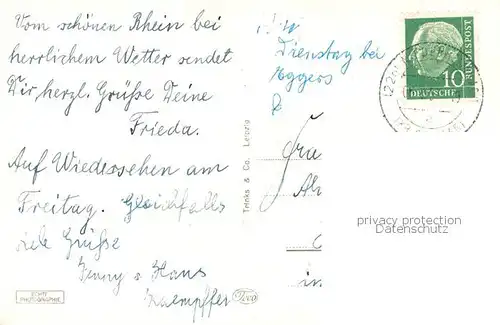 Vom schönen Rhein bei
herrlichem Wetter sendet
Dir herzl. Grüße Deine
Frieda.
Auf Wiedersehen am
Freitag. Gleichfalls
viele Grüße
Jenny u Hans
Kaempffer
ECHTE
PHOTOGRAPHIE
Trinks & Co. Leipzig
Dienstag bei
Eggers
10
DEUTSCHE
BUNDESPOST
privacy protection
Datenschutz